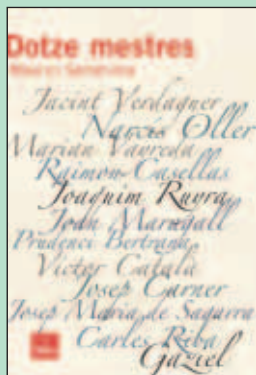 Dotze mestres
Maurici Serrahima
Jacint Verdaguer
Narcís Oller
Marian Vayreda
Raimon Casellas
Joaquim Ruyra
Joan Maragall
Prudenci Bertrana
Víctor Català
Josep Carner
Josep Maria de Sagarra
Carles Riba
Gaziel